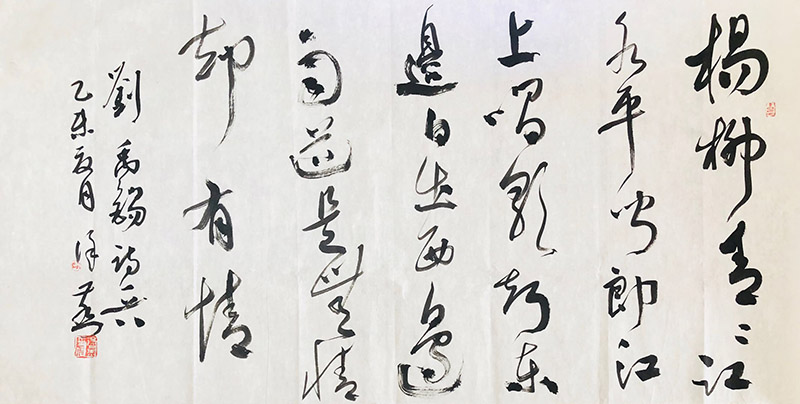 楊柳青〻江
水平聞郎江
上唱歌聲東
邊日出西邊
雨道是無情
却有情
劉禹錫詩一首
乙未夏月